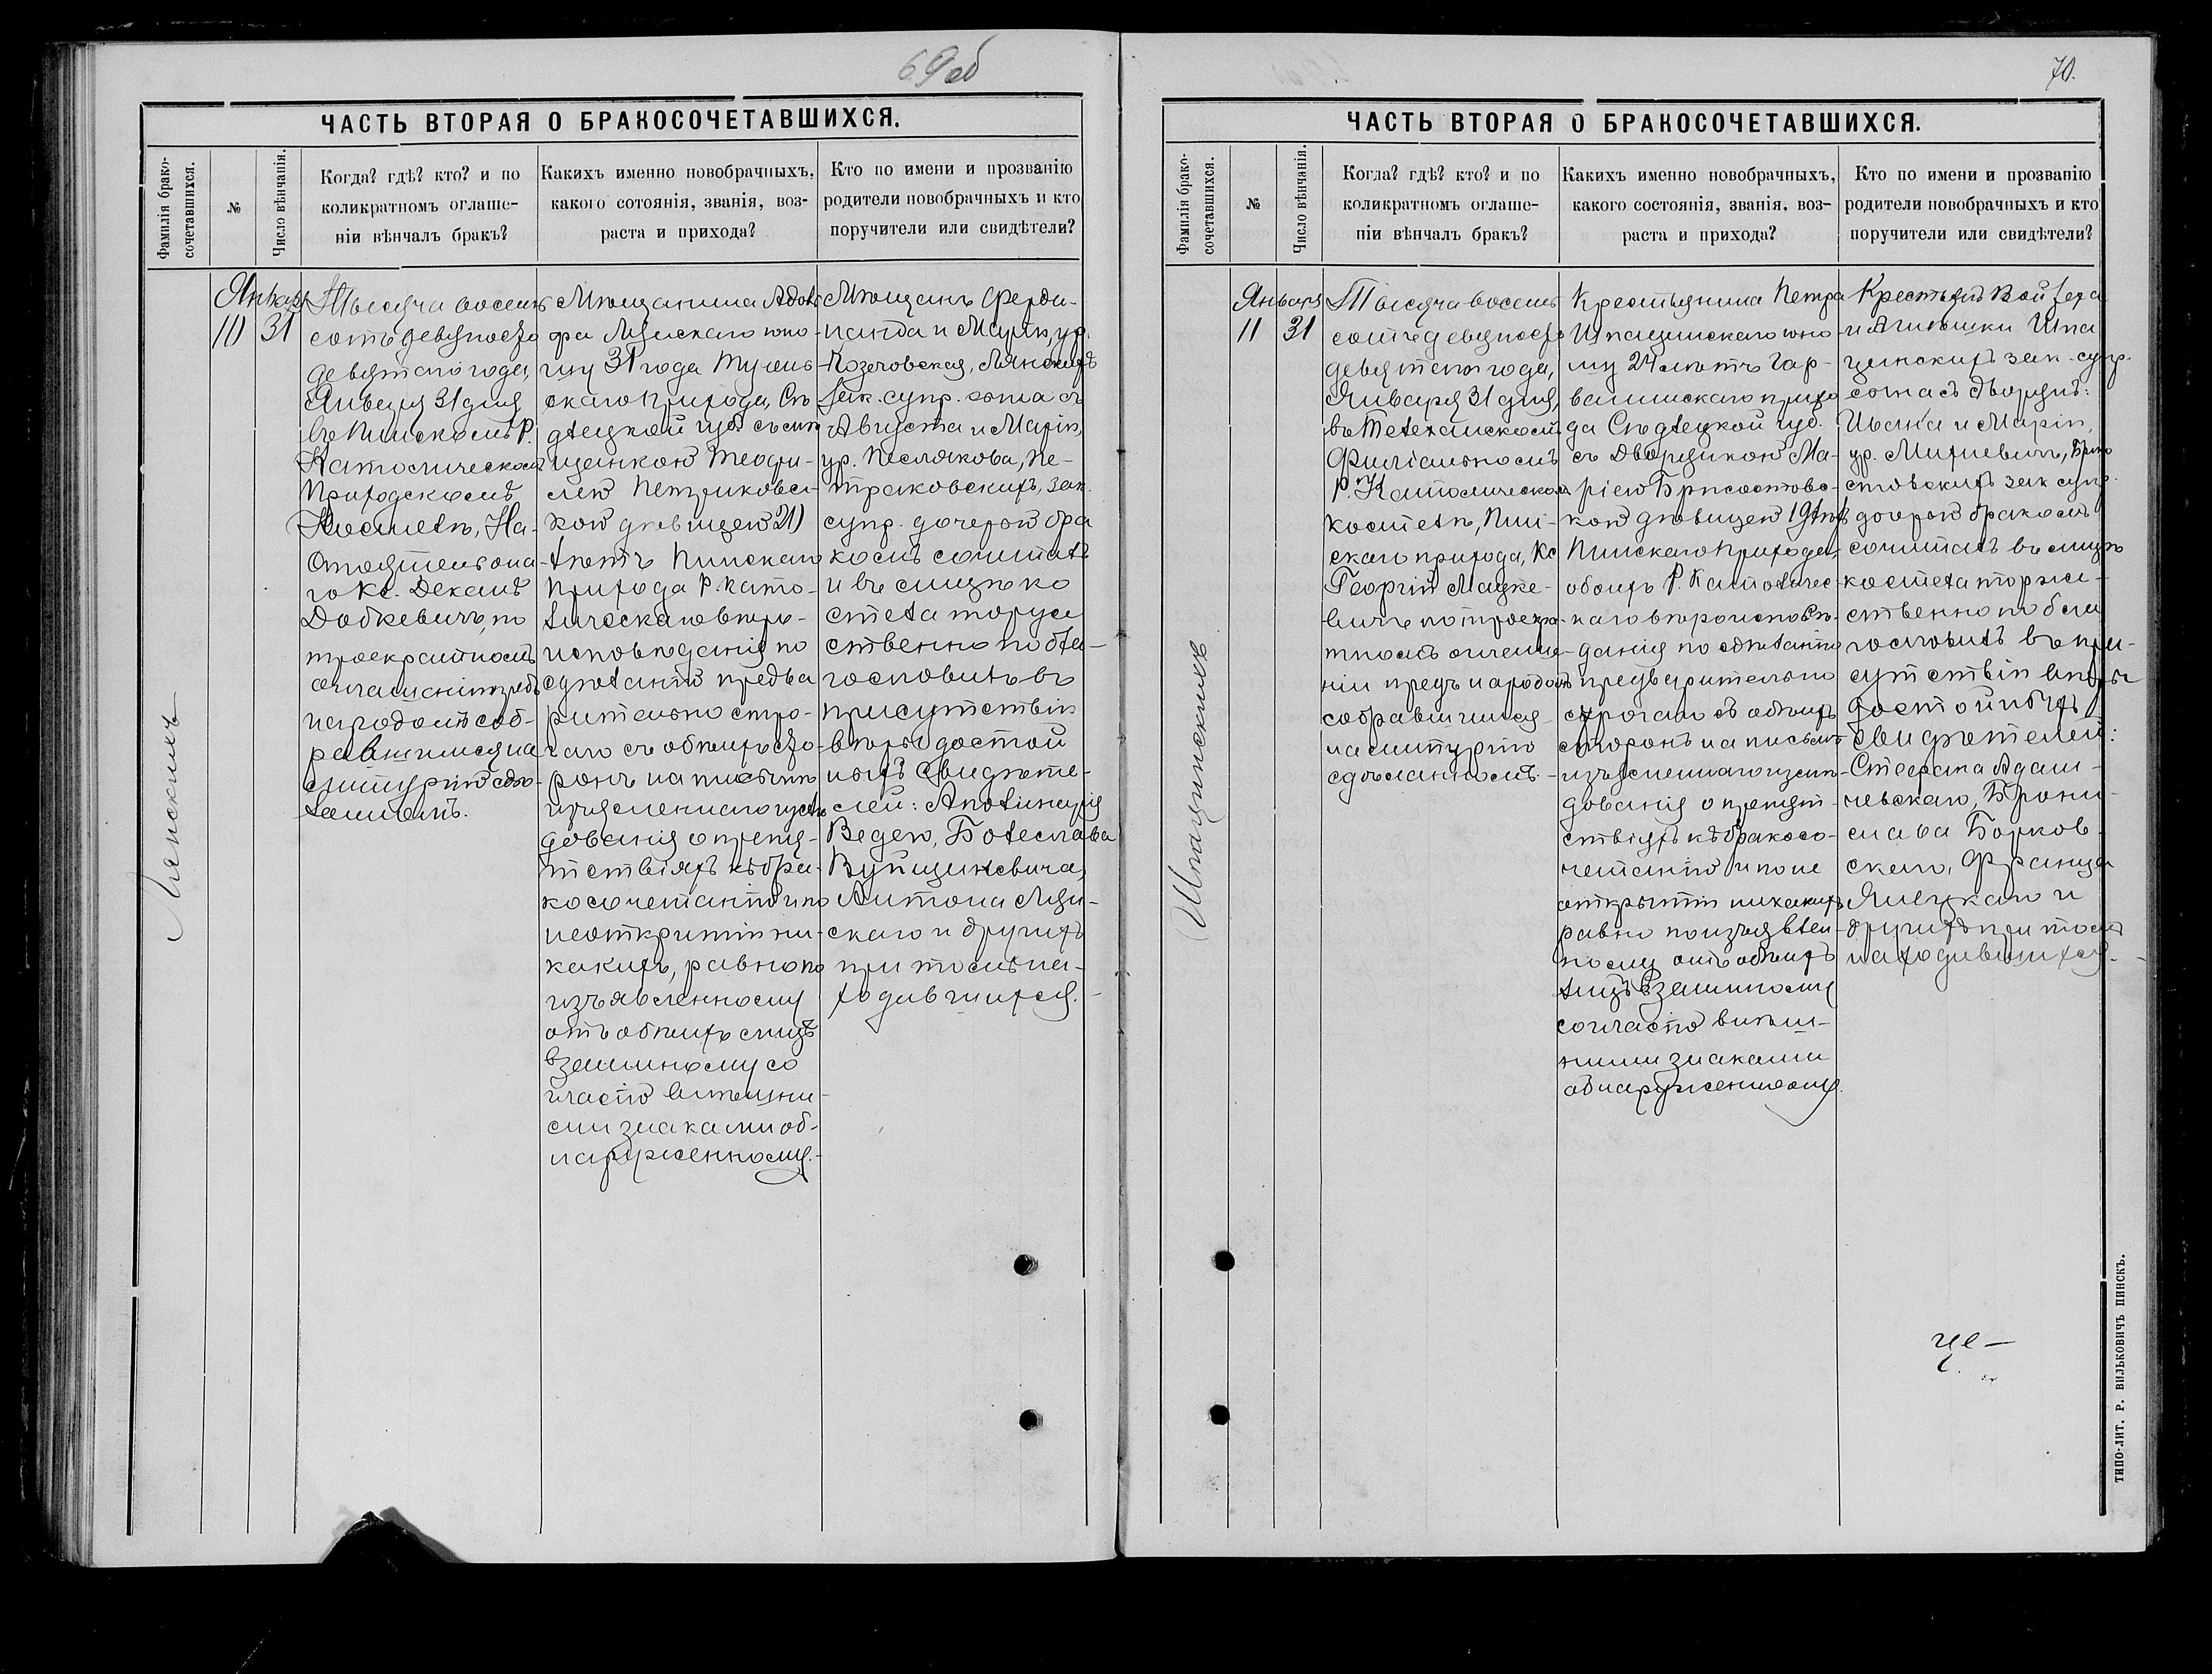 69 об
ЧАСТЬ ВТОРАЯ О БРАКОСОЧЕТАВШИХСЯ.
Фамилія брако-
сочетавшихся.
№
Число вѣнчанія.
Когда? гдѣ? кто? и по
коликратномъ оглаше-
ніи вѣнчалъ бракъ?
Какихъ именно новобрачныхъ,
какого сотоянія, званія, воз-
раста и прихода?
Кто по имени и прозванію
родители новобрачныхъ и кто
поручители или свидѣтели?
Январь
10 31
Тысяча восемь
сотъ девяносто
девятаго года,
Января 31 дня
въ Пинскомъ Р.
Католическомъ
Приходскомъ
Костелѣ, На-
стоятель она
го Кс. Деканъ
Добкевичъ, по
троекратномъ
оглашеніи предъ
народомъ соб-
равшимся на
литургію сдѣ-
ланномъ.
Мѣщанина Адоль
фа
шу 31 года
скаго прихода, Сѣ
длецкой губ. съ мѣ
щанкою Теофи-
лею Петраковс-
кою дѣвицею 21)
лѣтъ Пинскаго
прихода Р. Като-
лическаго вѣро-
исповѣданія по
сдѣланіи предва
рительно стро-
гаго съ обѣихъ сто
ронъ на письмѣ
изъясненнаго изслѣ
дованія о препя-
тствіяхъ къ бра-
косочетанію и по
неоткрытіи ни-
какихъ, равно по
изъявленному
отъ обѣихъ лицъ
взаимному со
гласію внѣшни-
ми знаками об-
наруженному.
Мѣщанъ Ферди-
нанда и Маріи, ур.
зак. супр. сына съ
Августа и Маріи,
ур. Песляковa, Пе-
траковскихъ, зак.
супр. дочерью бра
комъ сочиталъ
и въ лицѣ ко
стела торже
ственно побла-
гословилъ въ
присутствіи
вѣры достой
ныхъ свидѣте-
лей: Аполинарія
Ведею, Болеслава
Антона
скаго и другихъ
при томъ на-
ходившихся.
70.
ЧАСТЬ ВТОРАЯ О БРАКОСОЧЕТАВШИХСЯ.
Фамилія брако-
сочетавшихся.
№
Число вѣнчанія.
Когда? гдѣ? кто? и по
коликратномъ оглаше-
ніи вѣнчалъ бракъ?
Какихъ именно новобрачныхъ,
какого состоянія, званія, воз-
раста и прихода?
Кто по имени и прозванію
родители новобрачныхъ и кто
поручители или свидѣтели?
Январь
11 31
Тысяча восемь
сотъ девяносто
девятаго года,
Января 31 дня,
въ Телеханскомъ
Филіальномъ
Р. Католическомъ
костелѣ, Пин-
скаго прихода, Кс
Георгій Мацке-
вичъ по троекра
тномъ оглаше-
ніи предъ народомъ
собравшимся
на литургію
сдѣланномъ.
Крестьянина Петра
юно
шу 24 лѣтъ Гар-
волинскаго прихо
да Сѣдлецкой губ.
съ Дворянкою Ма-
ріею
кою дѣвицею 19 лѣтъ
Пинскаго Прихода,
обоихъ Р. Католичес-
каго вѣроисповѣ-
данія по сдѣланіи
предварительно
строгаго съ обѣихъ
сторонъ на письмѣ
изъясненнаго изслѣ-
дованія о препят-
ствіяхъ къ бракосо-
четанію и по не
открытіи никакихъ,
равно по изъявлен-
ному отъ обѣихъ
лицъ взаимному
согласію внѣш-
ними знаками
обнаруженному.
Крестьянъ
и
зак. супр.
сына съ Дворянъ:
Ивана и Маріи,
ур.
зак супр.
дочерью бракомъ
сочиталъ въ лицѣ
костела торже-
ственно побла
гословилъ въ при-
сутствіи вѣры
достойныхъ
свидѣтелей:
Стефана Адам-
чевскаго, Брони-
слава Борков-
скаго, Франца
и
другихъ при томъ
находившихся.
ТИПО-ЛИТ. Р. ВИЛЬКОВИЧЪ ПИНСКЪ.